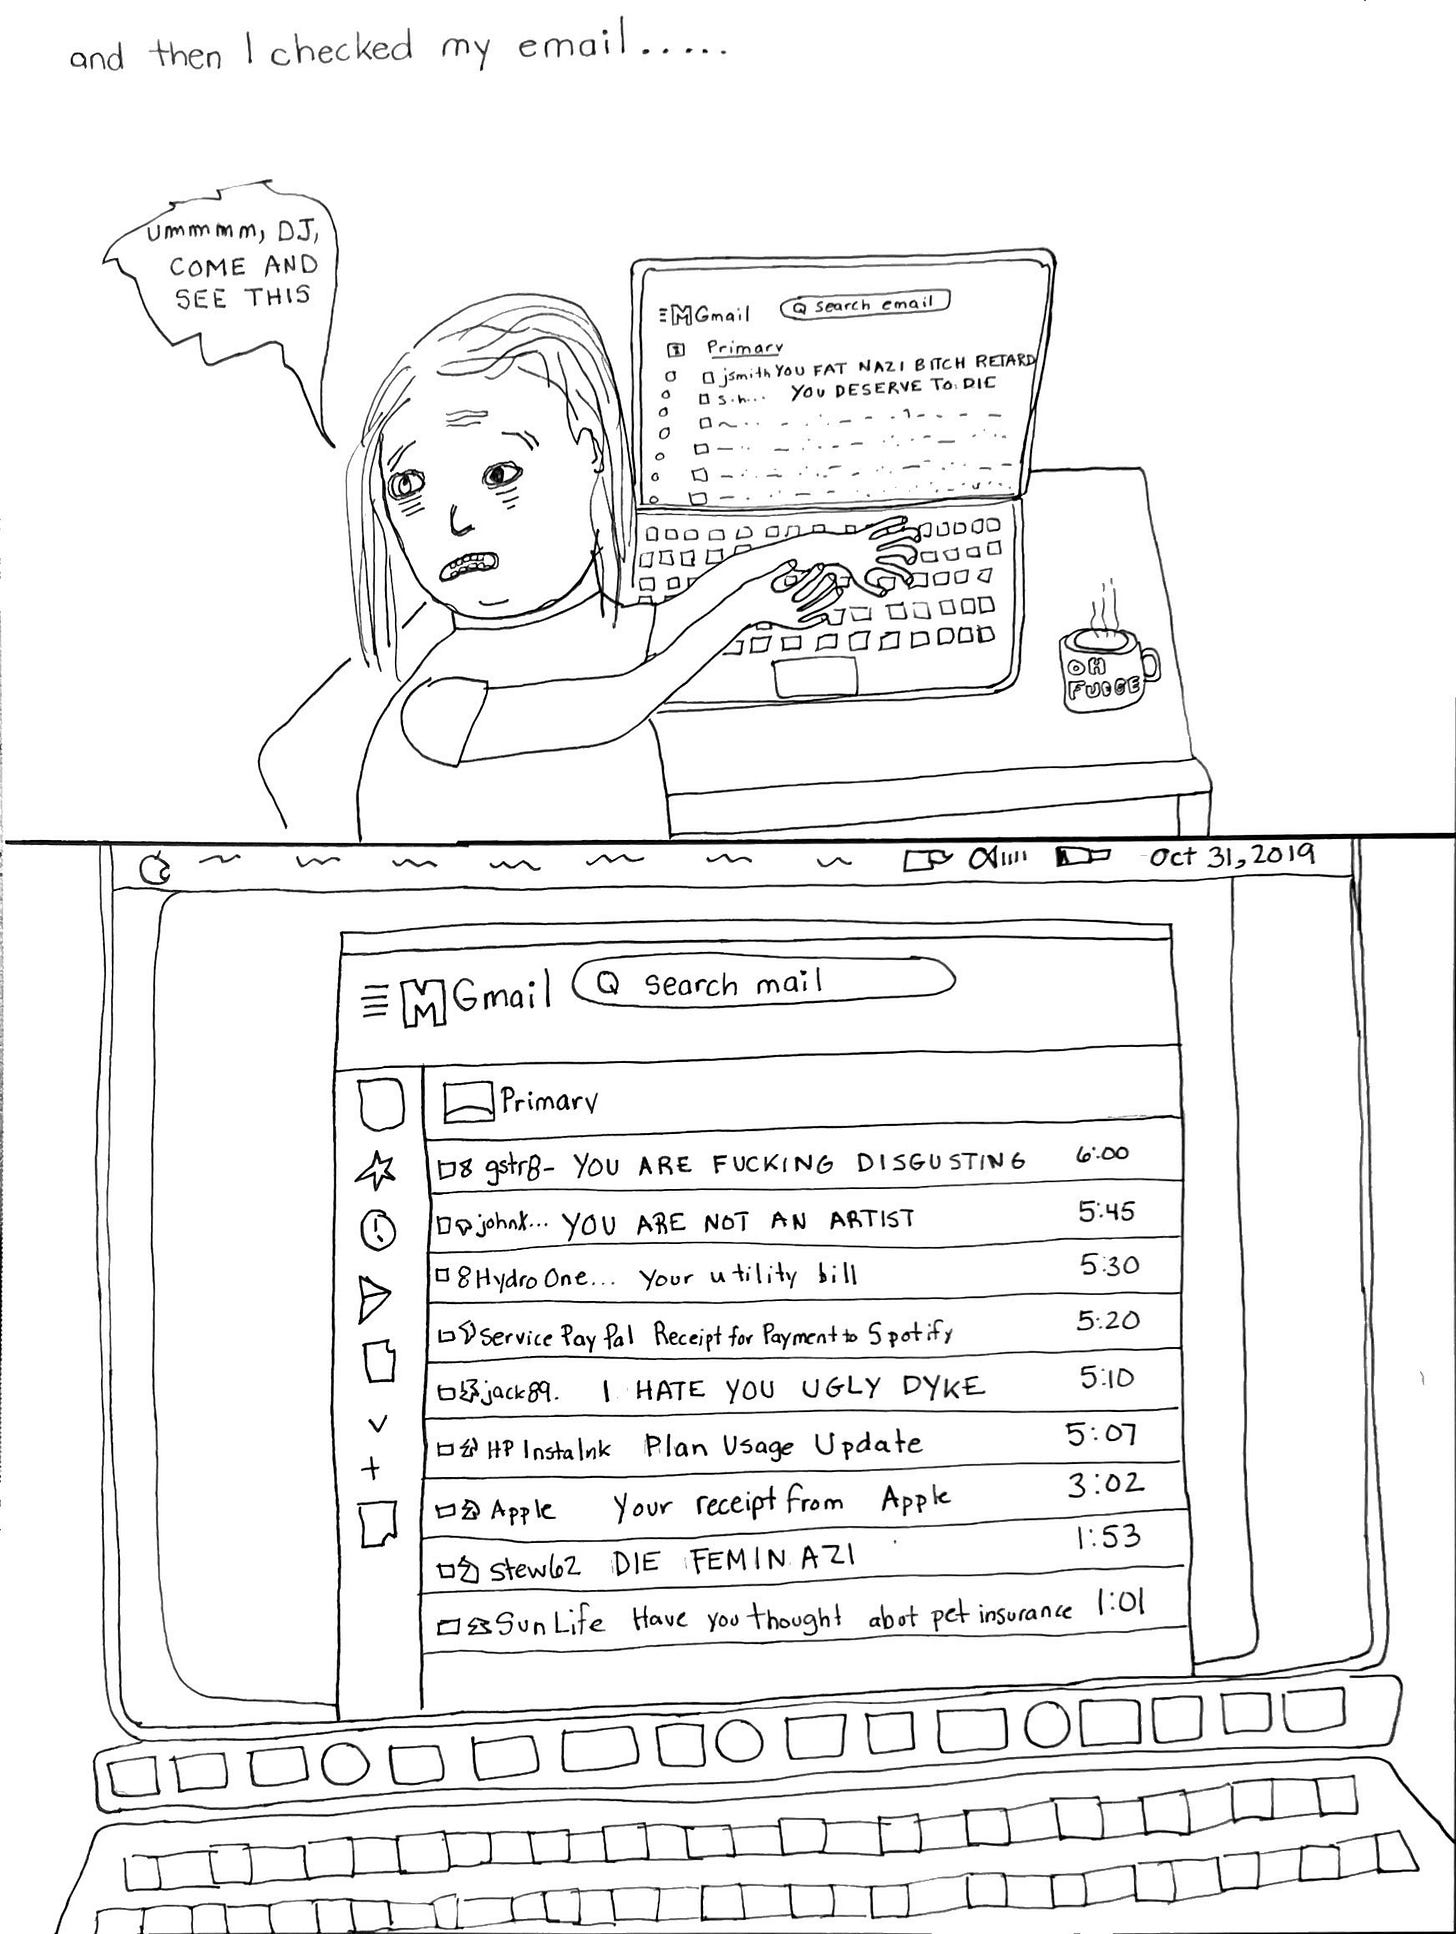 and then I checked my email.....
ummmm, DJ,
COME AND
SEE THIS
M Gmail Search email
Primary
jsmith YOU FAT NAZI BITCH RETARD
s.h... YOU DESERVE TO DIE
OH
FUDGE
Oct 31, 2019
M Gmail Search mail
Primary
gstr8- YOU ARE FUCKING DISGUSTING 6:00
johnX... YOU ARE NOT AN ARTIST 5:45
Hydro One... Your utility bill 5:30
Service PayPal Receipt for Payment to Spotify 5:20
jack89. I HATE YOU UGLY DYKE 5:10
HP InstaInk Plan Usage Update 5:07
Apple Your receipt from Apple 3:02
stew62 DIE FEMINAZI 1:53
Sun Life Have you thought abot pet insurance 1:01